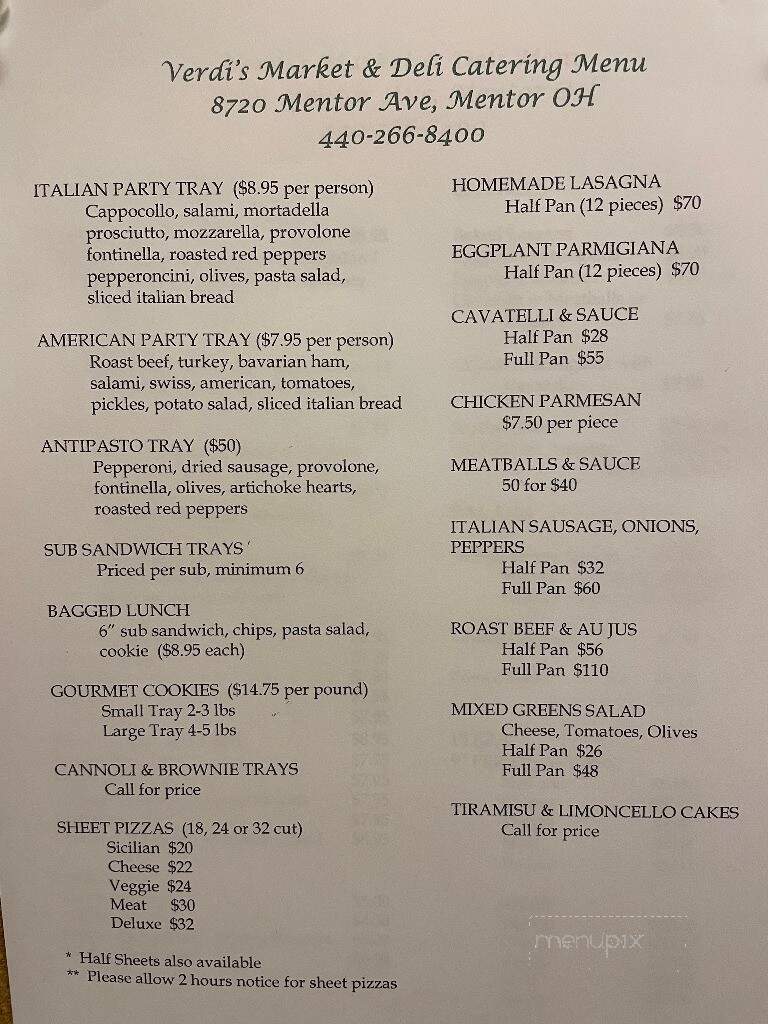 Verdi's Market & Deli Catering Menu
8720 Mentor Ave, Mentor OH
440-266-8400
ITALIAN PARTY TRAY ($8.95 per person)
Cappocollo, salami, mortadella
prosciutto, mozzarella, provolone
fontinella, roasted red peppers
pepperoncini, olives, pasta salad,
sliced italian bread
AMERICAN PARTY TRAY ($7.95 per person)
Roast beef, turkey, bavarian ham,
salami, swiss, american, tomatoes,
pickles, potato salad, sliced italian bread
ANTIPASTO TRAY ($50)
Pepperoni, dried sausage, provolone,
fontinella, olives, artichoke hearts,
roasted red peppers
SUB SANDWICH TRAYS
Priced per sub, minimum 6
BAGGED LUNCH
6" sub sandwich, chips, pasta salad,
cookie ($8.95 each)
GOURMET COOKIES ($14.75 per pound)
Small Tray 2-3 lbs
Large Tray 4-5 lbs
CANNOLI & BROWNIE TRAYS
Call for price
SHEET PIZZAS (18, 24 or 32 cut)
Sicilian $20
Cheese $22
Veggie $24
Meat $30
Deluxe $32
* Half Sheets also available
** Please allow 2 hours notice for sheet pizzas
HOMEMADE LASAGNA
Half Pan (12 pieces) $70
EGGPLANT PARMIGIANA
Half Pan (12 pieces) $70
CAVATELLI & SAUCE
Half Pan $28
Full Pan $55
CHICKEN PARMESAN
$7.50 per piece
MEATBALLS & SAUCE
50 for $40
ITALIAN SAUSAGE, ONIONS,
PEPPERS
Half Pan $32
Full Pan $60
ROAST BEEF & AU JUS
Half Pan $56
Full Pan $110
MIXED GREENS SALAD
Cheese, Tomatoes, Olives
Half Pan $26
Full Pan $48
TIRAMISU & LIMONCELLO CAKES
Call for price
menupix